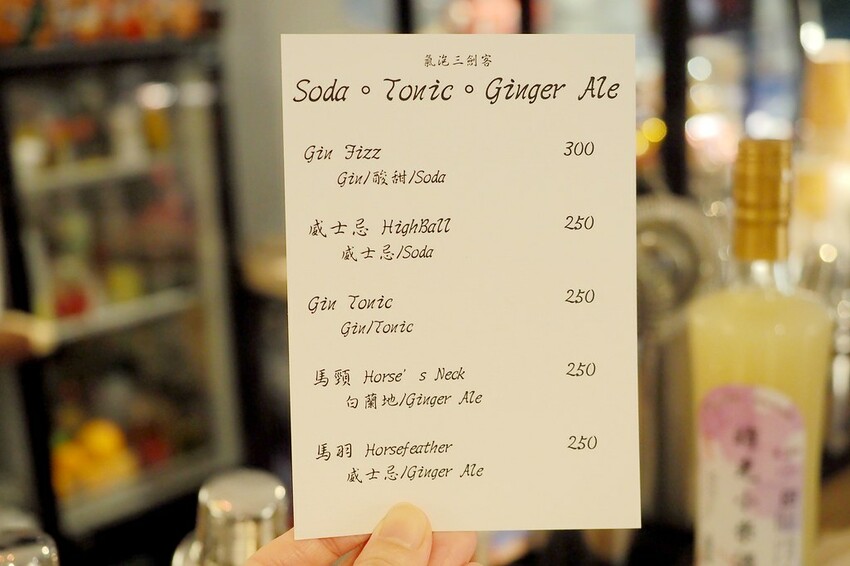 氣泡三劍客
Soda。Tonic。Ginger Ale
Gin Fizz 300
Gin/酸甜/Soda
威士忌 HighBall 250
威士忌/Soda
Gin Tonic 250
Gin/Tonic
馬頸 Horse's Neck 250
白蘭地/Ginger Ale
馬羽 Horsefeather 250
威士忌/Ginger Ale